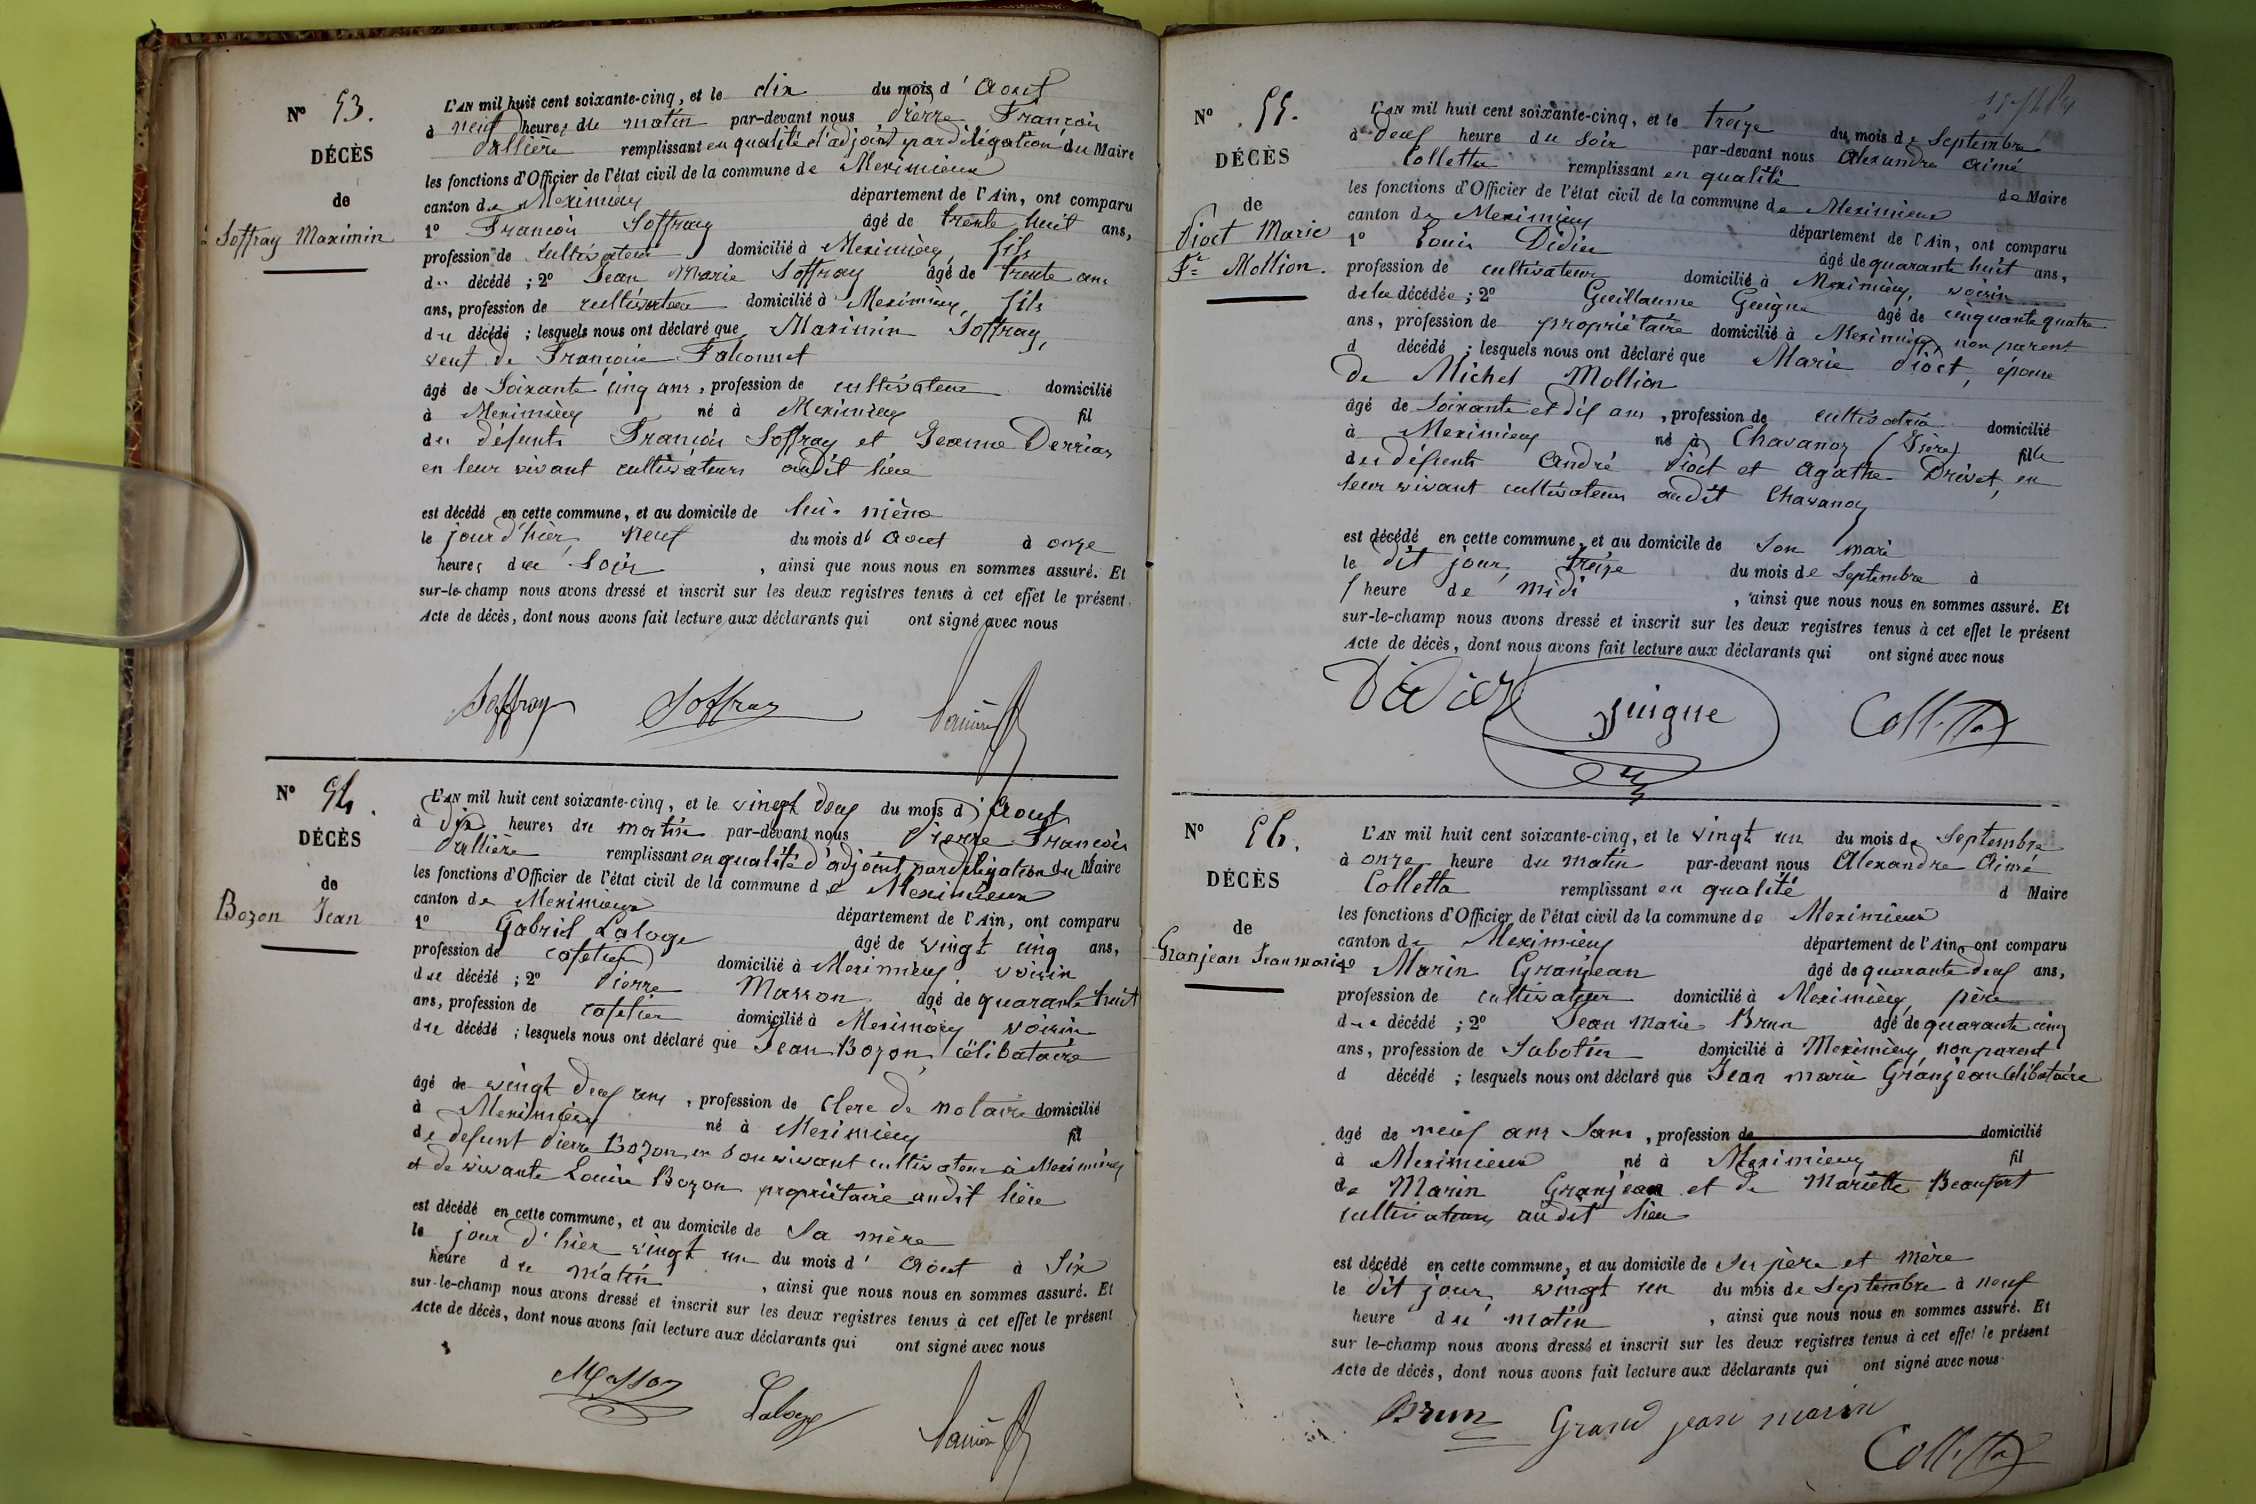 N° 53.
DÉCÈS
de
Soffray Maximin
L'AN mil huit cent soixante-cinq, et le dix du mois d'Aout
à neuf heures du matin par-devant nous Pierre François
Vallière remplissant en qualité d'adjoint par délégation du Maire
les fonctions d'Officier de l'état civil de la commune de Meximieux
canton de Meximieux département de l'Ain, ont comparu
1° François Soffray âgé de trente huit ans,
profession de cultivateur domicilié à Meximieux, fils
du décédé ; 2° Jean Marie Soffray âgé de trente ans
ans, profession de cultivateur domicilié à Meximieux, fils
du décédé ; lesquels nous ont déclaré que Maximin Soffray,
veuf de Françoise Falconnet
âgé de Soixante cinq ans, profession de cultivateur domicilié
à Meximieux né à Meximieux fil
des défunts François Soffray et Jeanne Derrias
en leur vivant cultivateurs audit lieu
est décédé en cette commune, et au domicile de lui-même
le jour d'hier, neuf du mois d'Aout à onze
heures du Soir, ainsi que nous nous en sommes assuré. Et
sur-le-champ nous avons dressé et inscrit sur les deux registres tenus à cet effet le présent
Acte de décès, dont nous avons fait lecture aux déclarants qui ont signé avec nous
Soffray Soffray
N° 54.
DÉCÈS
de
Bozon Jean
L'AN mil huit cent soixante-cinq, et le vingt deux du mois d'Aout
à Dix heures du matin par-devant nous Pierre François
Vallière remplissant en qualité d'adjoint par délégation du Maire
les fonctions d'Officier de l'état civil de la commune de Meximieux
canton de Meximieux département de l'Ain, ont comparu
1° Gabriel Laloge âgé de vingt cinq ans,
profession de cafetier domicilié à Meximieux, voisin
du décédé ; 2° Pierre Masson âgé de quarante huit
ans, profession de cafetier domicilié à Meximieux voisin
du décédé ; lesquels nous ont déclaré que Jean Bozon, célibataire
âgé de vingt deux ans, profession de clerc de notaire domicilié
à Meximieux né à Meximieux fil
de defunt Pierre Bozon, en son vivant cultivateur à Meximieux
et de vivante Louise Bozon propriétaire audit lieu
est décédé en cette commune, et au domicile de Sa mère
le jour d'hier vingt un du mois d'Aout à Six
heure du matin, ainsi que nous nous en sommes assuré. Et
sur-le-champ nous avons dressé et inscrit sur les deux registres tenus à cet effet le présent
Acte de décès, dont nous avons fait lecture aux déclarants qui ont signé avec nous
Masson Laloge
N° 55.
DÉCÈS
de
Pioct Marie
Fe Mollion.
L'AN mil huit cent soixante-cinq, et le treize du mois de Septembre
à deux heure du Soir par-devant nous Alexandre Aimé
Colletta remplissant en qualité de Maire
les fonctions d'Officier de l'état civil de la commune de Meximieux
canton de Meximieux département de l'Ain, ont comparu
1° Louis Didier âgé de quarante huit ans,
profession de cultivateur domicilié à Meximieux, voisin
de la décédée ; 2° Guillaume Guigue âgé de cinquante quatre
ans, profession de propriétaire domicilié à Meximieux non parent
d décédé ; lesquels nous ont déclaré que Marie Pioct, épouse
de Michel Mollion
âgé de Soixante et dix ans, profession de cultivatrice domicilié
à Meximieux né à Chavanoz (Isère) fille
des défunts André Pioct et Agathe Drivet, en
leur vivant cultivateurs audit Chavanoz
est décédé en cette commune, et au domicile de Son mari
le dit jour, treize du mois de Septembre à
l'heure de midi, ainsi que nous nous en sommes assuré. Et
sur-le-champ nous avons dressé et inscrit sur les deux registres tenus à cet effet le présent
Acte de décès, dont nous avons fait lecture aux déclarants qui ont signé avec nous
Didier guigue Colletta
N° 56.
DÉCÈS
de
Granjean Jean marie
L'AN mil huit cent soixante-cinq, et le vingt un du mois de Septembre
à onze heure du matin par-devant nous Alexandre Aimé
Colletta remplissant en qualité d Maire
les fonctions d'Officier de l'état civil de la commune de Meximieux
canton de Meximieux département de l'Ain, ont comparu
1° Marin Granjean âgé de quarante deux ans,
profession de cultivateur domicilié à Meximieux, père
du décédé ; 2° Jean Marie Brun âgé de quarante cinq
ans, profession de Sabotier domicilié à Meximieux, non parent
d décédé ; lesquels nous ont déclaré que Jean marie Granjean célibataire
âgé de neuf ans Sans, profession de domicilié
à Meximieux né à Meximieux fil
de Marin Granjean et de Mariette Beaufort
cultivateurs audit lieu
est décédé en cette commune, et au domicile de Ses père et mère
le dit jour, vingt un du mois de Septembre à neuf
heure du matin, ainsi que nous nous en sommes assuré. Et
sur le-champ nous avons dressé et inscrit sur les deux registres tenus à cet effet le présent
Acte de décès, dont nous avons fait lecture aux déclarants qui ont signé avec nous
Brun Grand jean marin Colletta